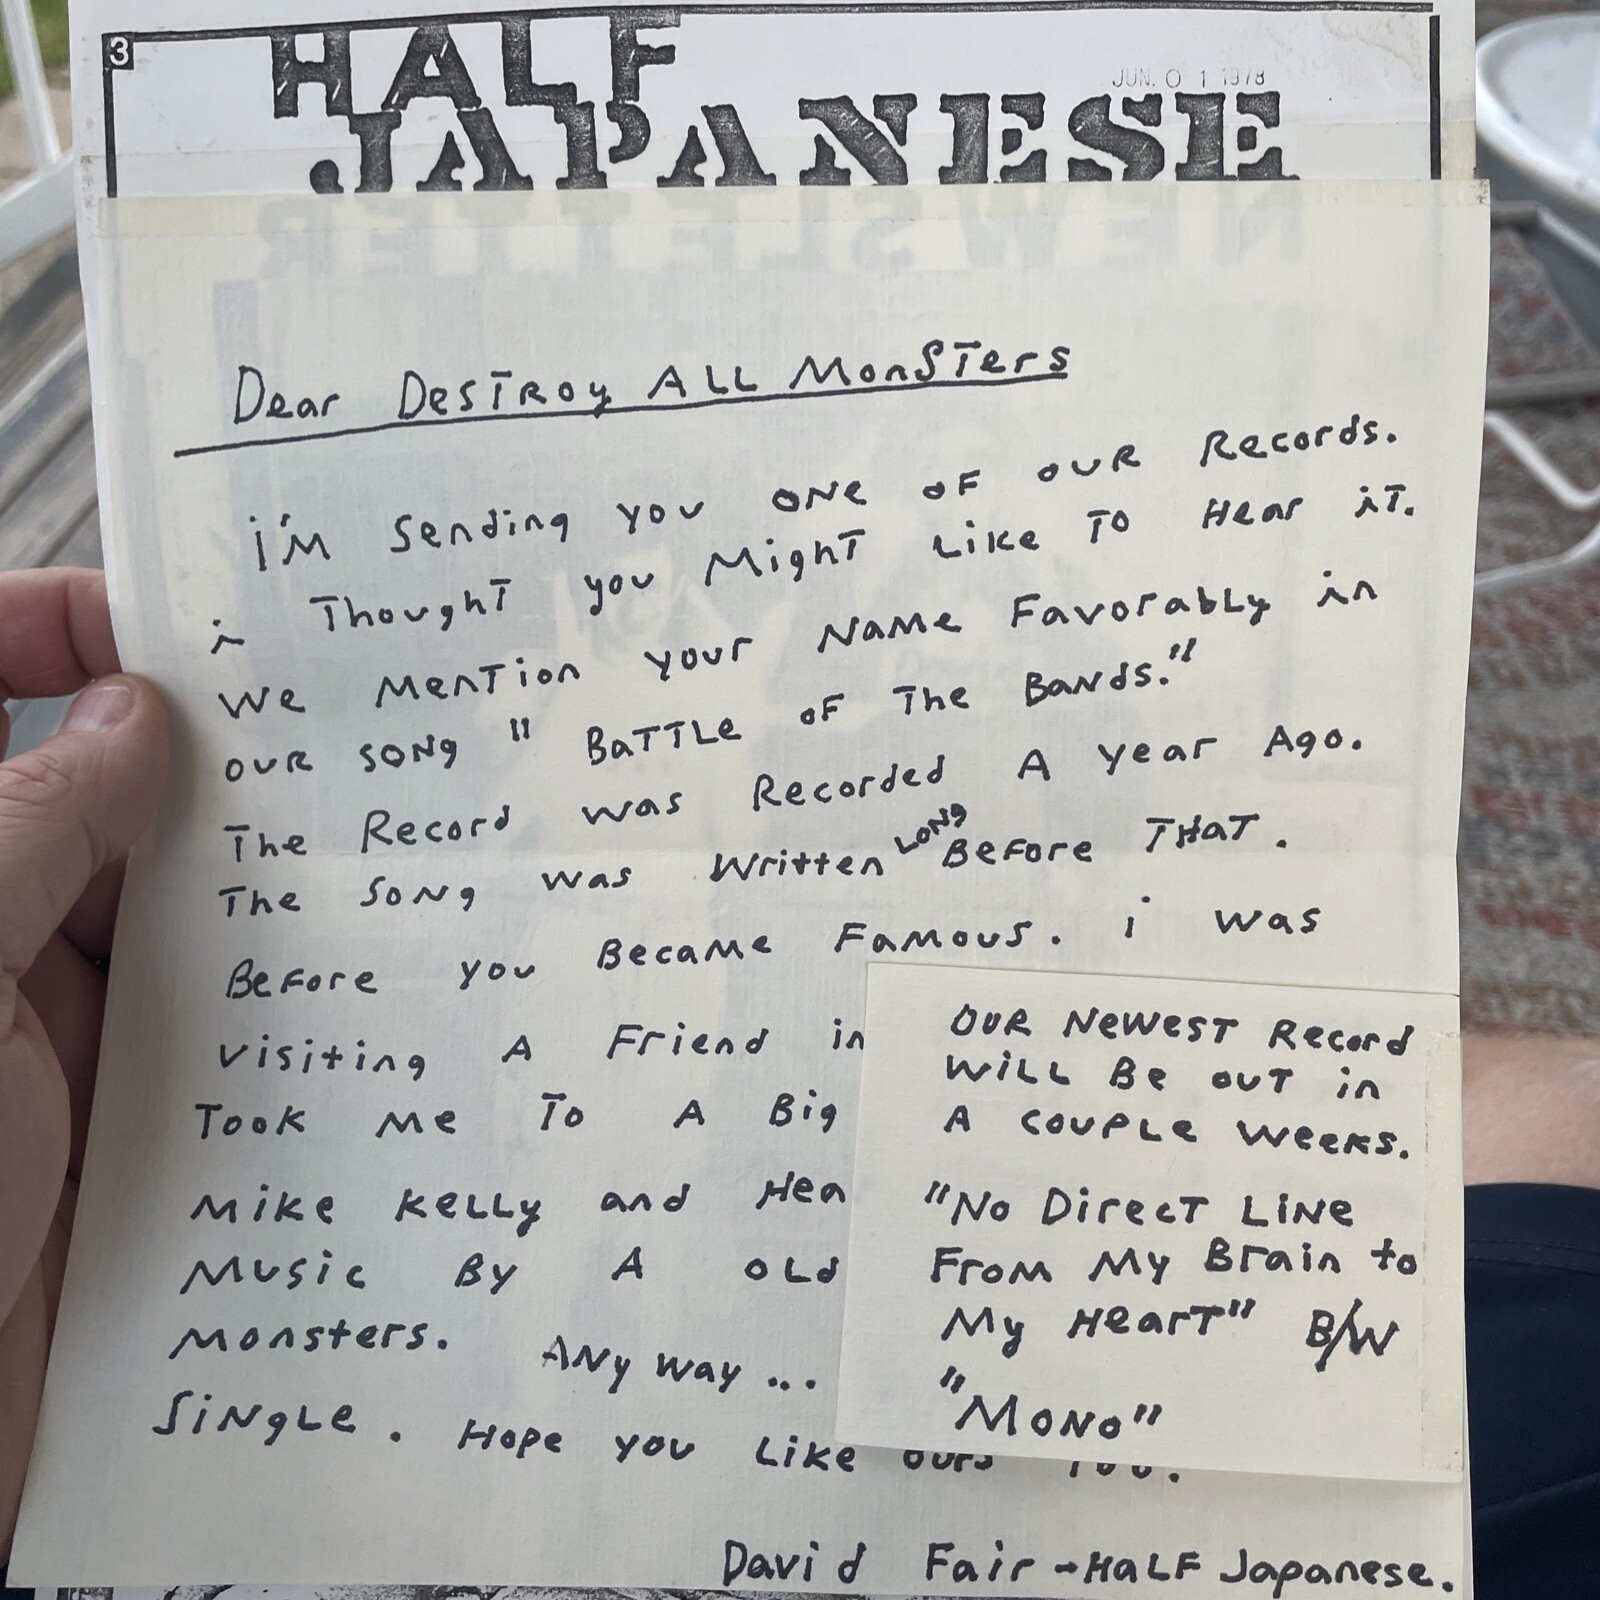 3
HALF
JUN. 0 1 1978
JAPANESE
NEWSLETTER
Dear DESTROY ALL MONSTERS
i'm sending you one of our Records.
i Thought you Might Like To Hear it.
We Mention your Name Favorably in
our song "Battle of The Bands."
The Record was Recorded A year Ago.
The song was Written LONG Before THAT.
Before you Became Famous. i was
visiting A Friend in
Took Me To A Big
Mike Kelly and
Music By A OLd
Monsters. Any way ...
Single. Hope you Like ours Too.
David Fair - HALF Japanese.
OUR NEWEST Record
WILL Be OUT in
A COUPLE WEEKS.
"No Direct Line
From My Brain to
My Heart" B/W
"Mono"